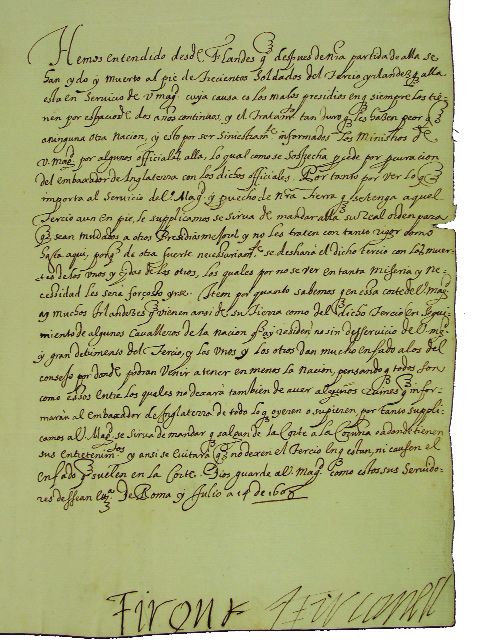 Hemos entendido desde Flandes q̃ despues de nr̃a partida de alla se
han ydo y muerto al pie de trecientos soldados del Tercio yrlandes q̃ alla
esta en servicio de V. Magd. cuya causa es los malos presidios en q̃ siempre los tie-
nen por espacio de dos años continuos, y el tratamto. tan duro q̃ les hazen peor q̃
a ninguna otra nacion, y esto por ser siniestramte. informados los Ministros de
V. Magd. por algunos officiales alla, lo qual como se sospecha procede por
del embaxador de Inglaterra con los dichos officiales. Por tanto por ver lo q̃
importa al servicio de V. Magd. y provecho de nr̃a tierra q̃ se tenga aquel
Tercio aun en pie, le supplicamos se sirva de mandar alla su real orden para
q̃ sean mudados a otros presidios mejores y no les traten con tanto rigor como
hasta aqui, porq̃ de otra suerte necessariamte. se deshara el dicho tercio con la muer-
te de los unos y de los otros, los quales por no se ver en tanta miseria y ne-
cessidad les sera forçoso yrse. Item por quanto sabemos q̃ en essa corte de V. Magd.
ay muchos Irlandeses q̃ vienen ansi de su tierra como del dicho Tercio en segui-
miento de algunos cavalleros de la nacion q̃ ay residen no sin desservicio de V. Magd.
y gran detrimento del Tercio, y los unos y los otros dan mucho enfado a los del
consejo por donde podran venir a tener en menos la nacion, pensando q̃ todos son
como essos entre los quales no dexara tambien de aver algunos ruines q̃ infor-
maran al embaxador de Inglaterra de todo lo q̃ oyeren o supieren por tanto suppli-
camos a V. Magd. se sirva de mandar q̃ salgan de la Corte a la Coruña o a donde tienen
sus entretenimtos. y ansi se evitara q̃ no dexen el Tercio en q̃ estan, ni causen el
enfado q̃ suelen en la Corte. Dios guarde a V. Magd. como estos sus servido-
res dessean. De Roma y Julio a 14 de 1608
Tirone Tirconell